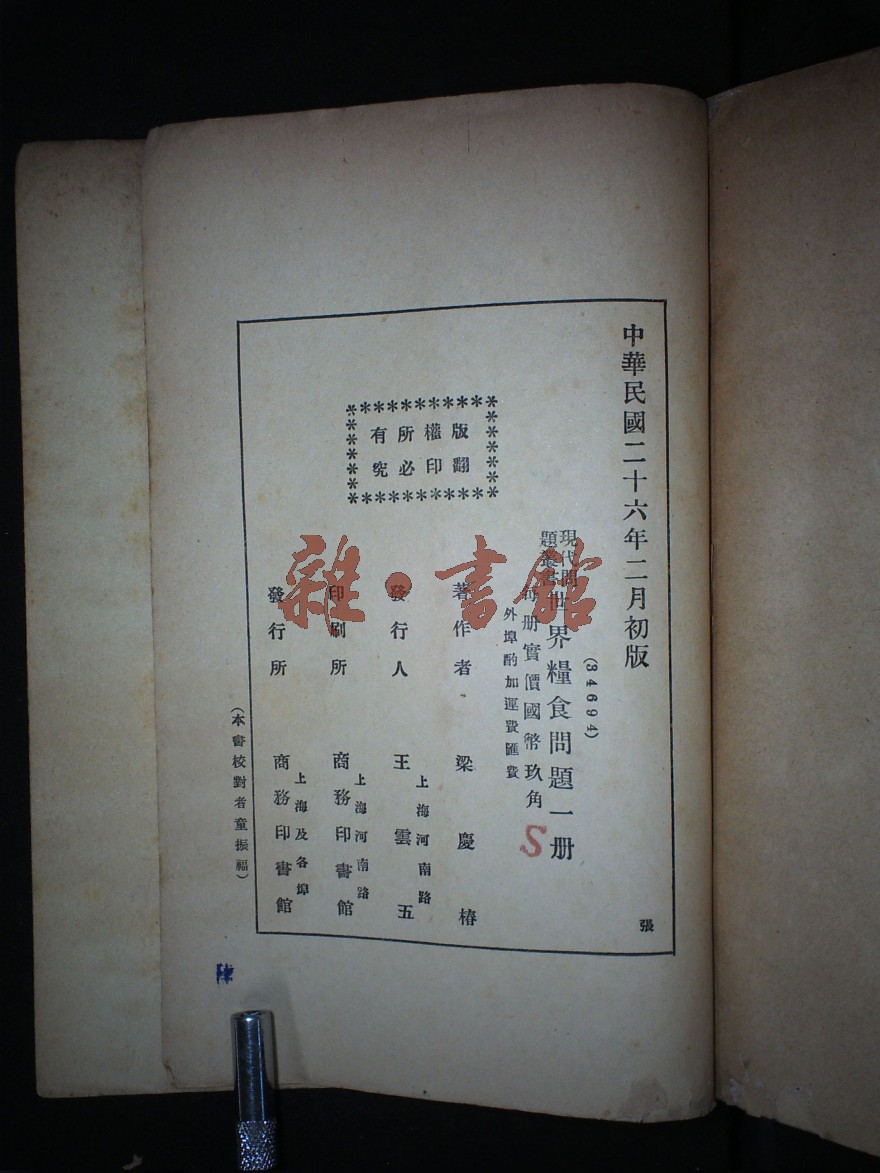 中華民國二十六年二月初版
(34694)
現代問
題叢書
世界糧食問題一册
每册實價國幣玖角
外埠酌加運費匯費
S
版權所有
翻印必究
著作者 梁慶椿
發行人 王雲五
上海河南路
印刷所 商務印書館
上海河南路
發行所 商務印書館
上海及各埠
(本書校對者童振福)
張
雜·書館